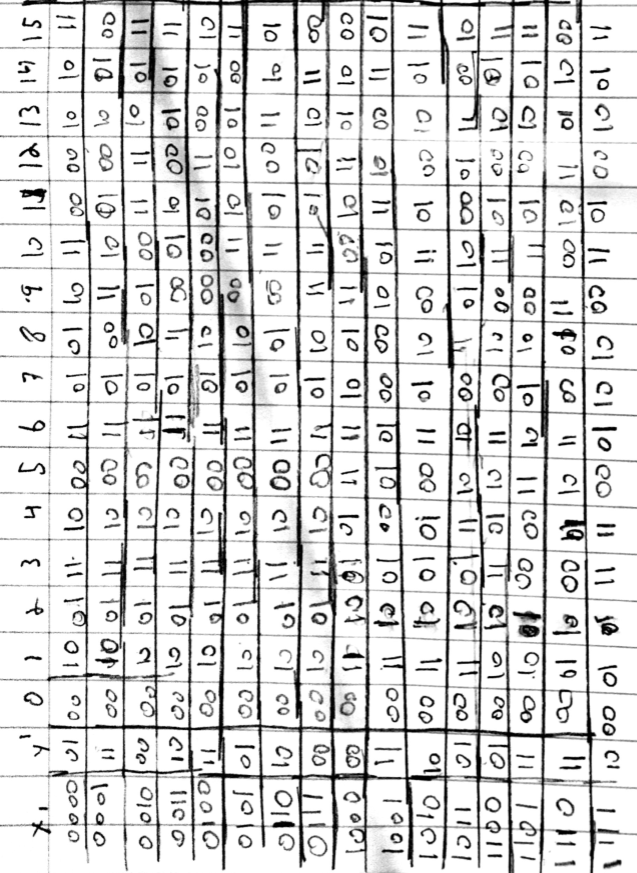 x' y' 0 1 2 3 4 5 6 7 8 9 10 11 12 13 14 15
0000 10 00 10 01 11 10 00 11 10 10 01 11 00 00 01 01 11
1000 11 00 10 10 11 01 00 11 10 00 11 01 10 00 01 10 00
0100 00 00 01 10 11 01 00 11 10 01 10 00 11 11 01 10 11
1100 01 00 01 10 11 01 00 11 10 11 00 10 01 00 10 10 11
0010 11 00 01 10 11 01 00 11 10 01 00 00 10 11 00 10 01
1010 10 00 01 10 11 01 00 11 10 01 00 11 01 01 10 00 11
0110 01 00 01 10 11 01 00 11 10 10 00 11 10 00 11 01 10
1110 00 00 01 10 11 01 00 11 10 01 11 11 10 10 01 11 00
0001 00 00 11 01 10 10 11 11 01 10 11 00 01 11 10 01 00
1001 11 00 11 01 10 00 10 10 00 00 01 10 11 01 00 11 10
0101 01 00 11 01 10 10 00 11 10 01 00 11 10 00 01 10 11
1101 10 00 11 01 10 11 01 01 00 11 10 01 00 10 11 00 01
0011 10 00 01 01 11 10 01 11 00 01 00 11 10 00 01 10 11
1011 11 00 01 10 00 00 11 01 10 01 00 11 10 00 01 10 11
0111 11 00 10 01 00 10 01 11 00 10 11 00 01 11 10 01 00
1111 01 00 10 10 11 11 00 10 01 01 00 11 10 00 01 10 11